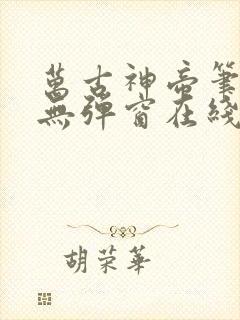 萬古神帝筆
無彈窗在綫
胡荣華